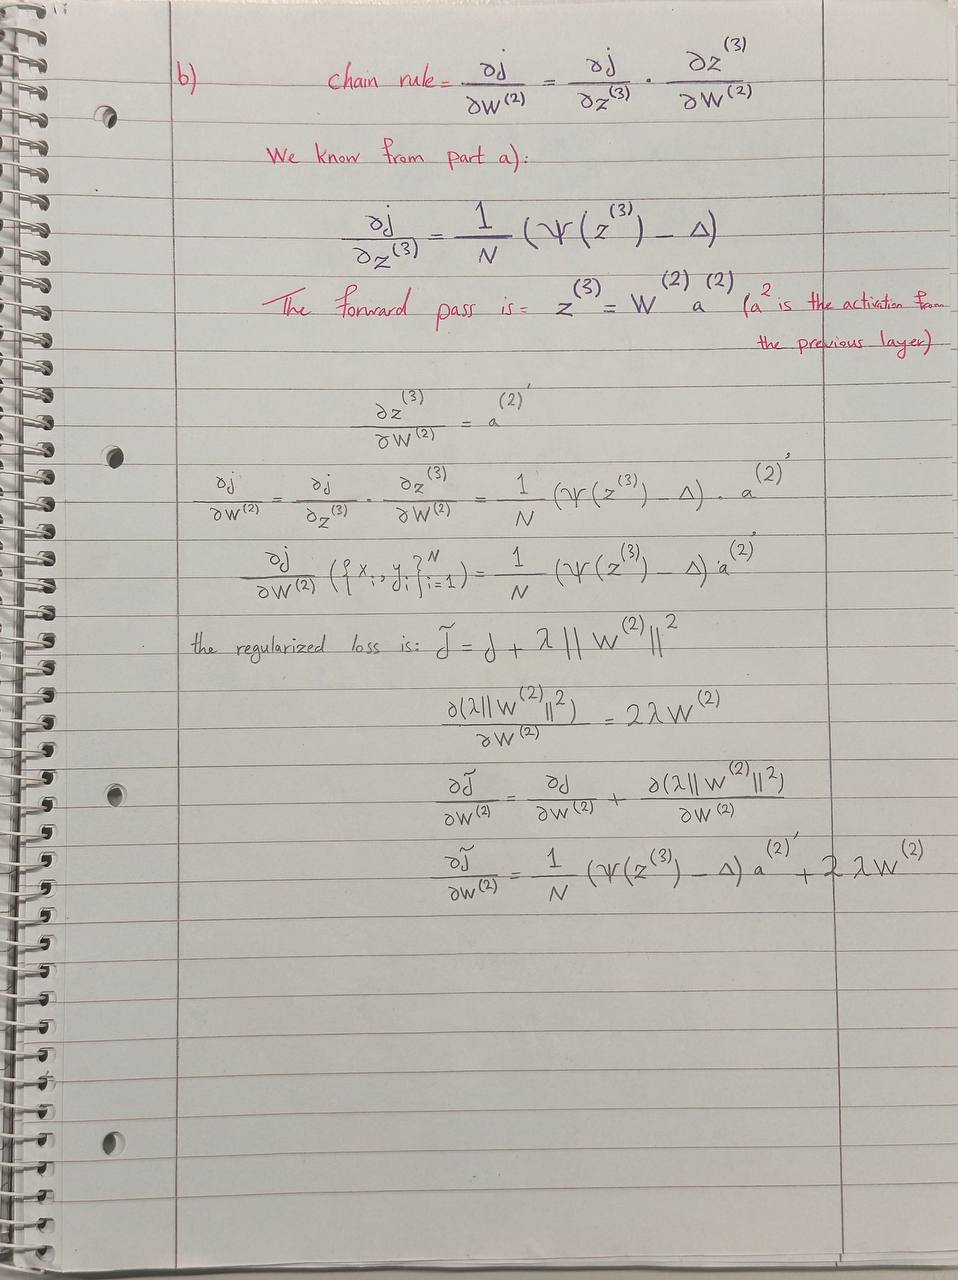 b) chain rule = ∂j/∂W⁽²⁾ = ∂j/∂z⁽³⁾ · ∂z⁽³⁾/∂W⁽²⁾
We know from part a):
∂j/∂z⁽³⁾ = 1/N (Ψ(z⁽³⁾) − Δ)
The forward pass is = z⁽³⁾ = W⁽²⁾ a⁽²⁾ (a² is the activation from
the previous layer)
∂z⁽³⁾/∂W⁽²⁾ = a⁽²⁾′
∂j/∂W⁽²⁾ = ∂j/∂z⁽³⁾ · ∂z⁽³⁾/∂W⁽²⁾ = 1/N (Ψ(z⁽³⁾) − Δ) · a⁽²⁾′
∂j/∂W⁽²⁾ ({xᵢ, yᵢ}ᵢ₌₁ᴺ) = 1/N (Ψ(z⁽³⁾) − Δ) · a⁽²⁾′
the regularized loss is: J̃ = J + λ || W⁽²⁾ ||²
∂(λ|| W⁽²⁾ ||²)/∂W⁽²⁾ = 2λW⁽²⁾
∂J̃/∂W⁽²⁾ = ∂J/∂W⁽²⁾ + ∂(λ|| W⁽²⁾ ||²)/∂W⁽²⁾
∂J̃/∂W⁽²⁾ = 1/N (Ψ(z⁽³⁾) − Δ) a⁽²⁾′ + 2λW⁽²⁾